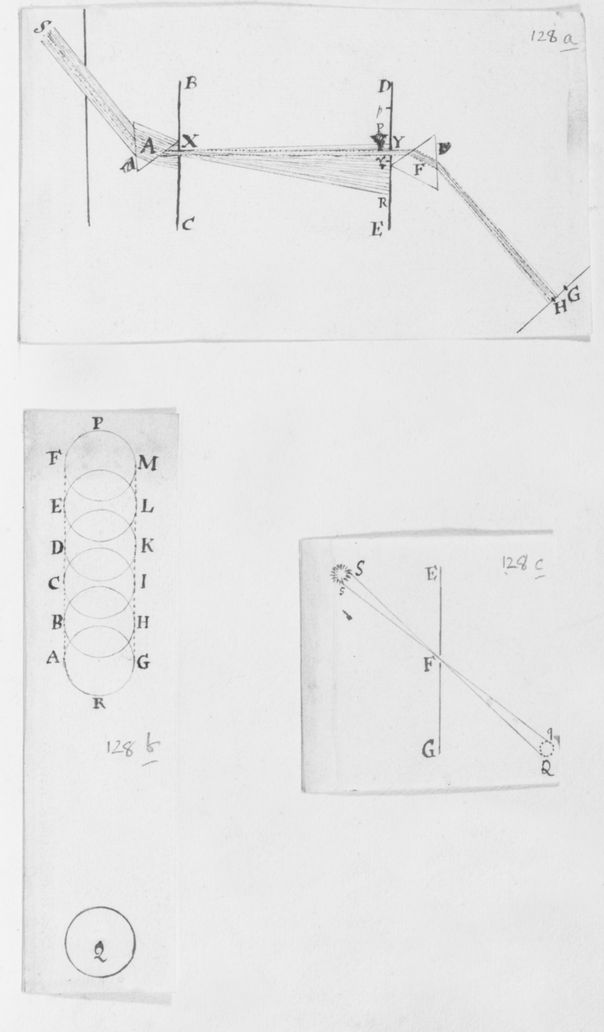 S
128 a
B
D
P
P
A
X
Y
F
C
R
E
H G
P
F M
E L
D K
C I
B H
A G
R
128 b
Q
128 c
S
s
E
F
G
q
Q